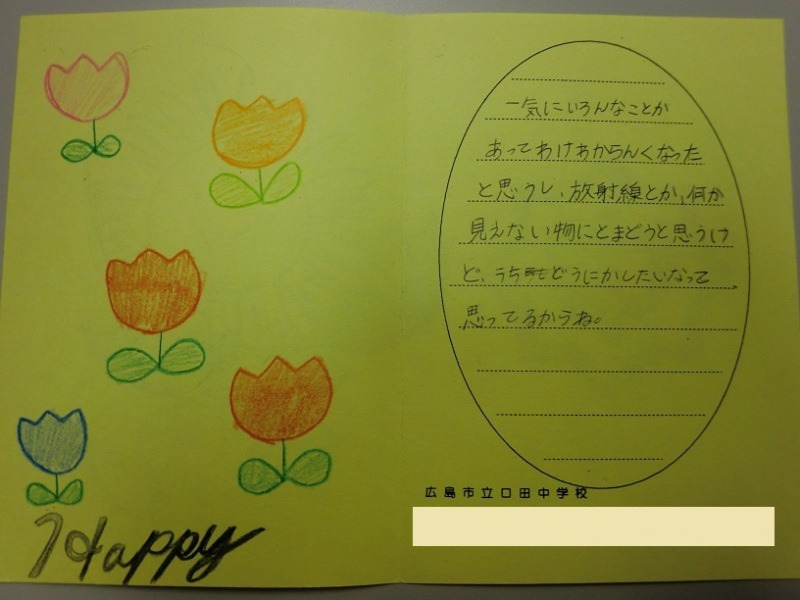 一気にいろんなことが
あってわけわからんくなった
と思うし、放射線とか、何か
見えない物にとまどうと思うけ
ど、うちもどうにかしたいなって
思ってるからね。
広島市立口田中学校
Happy